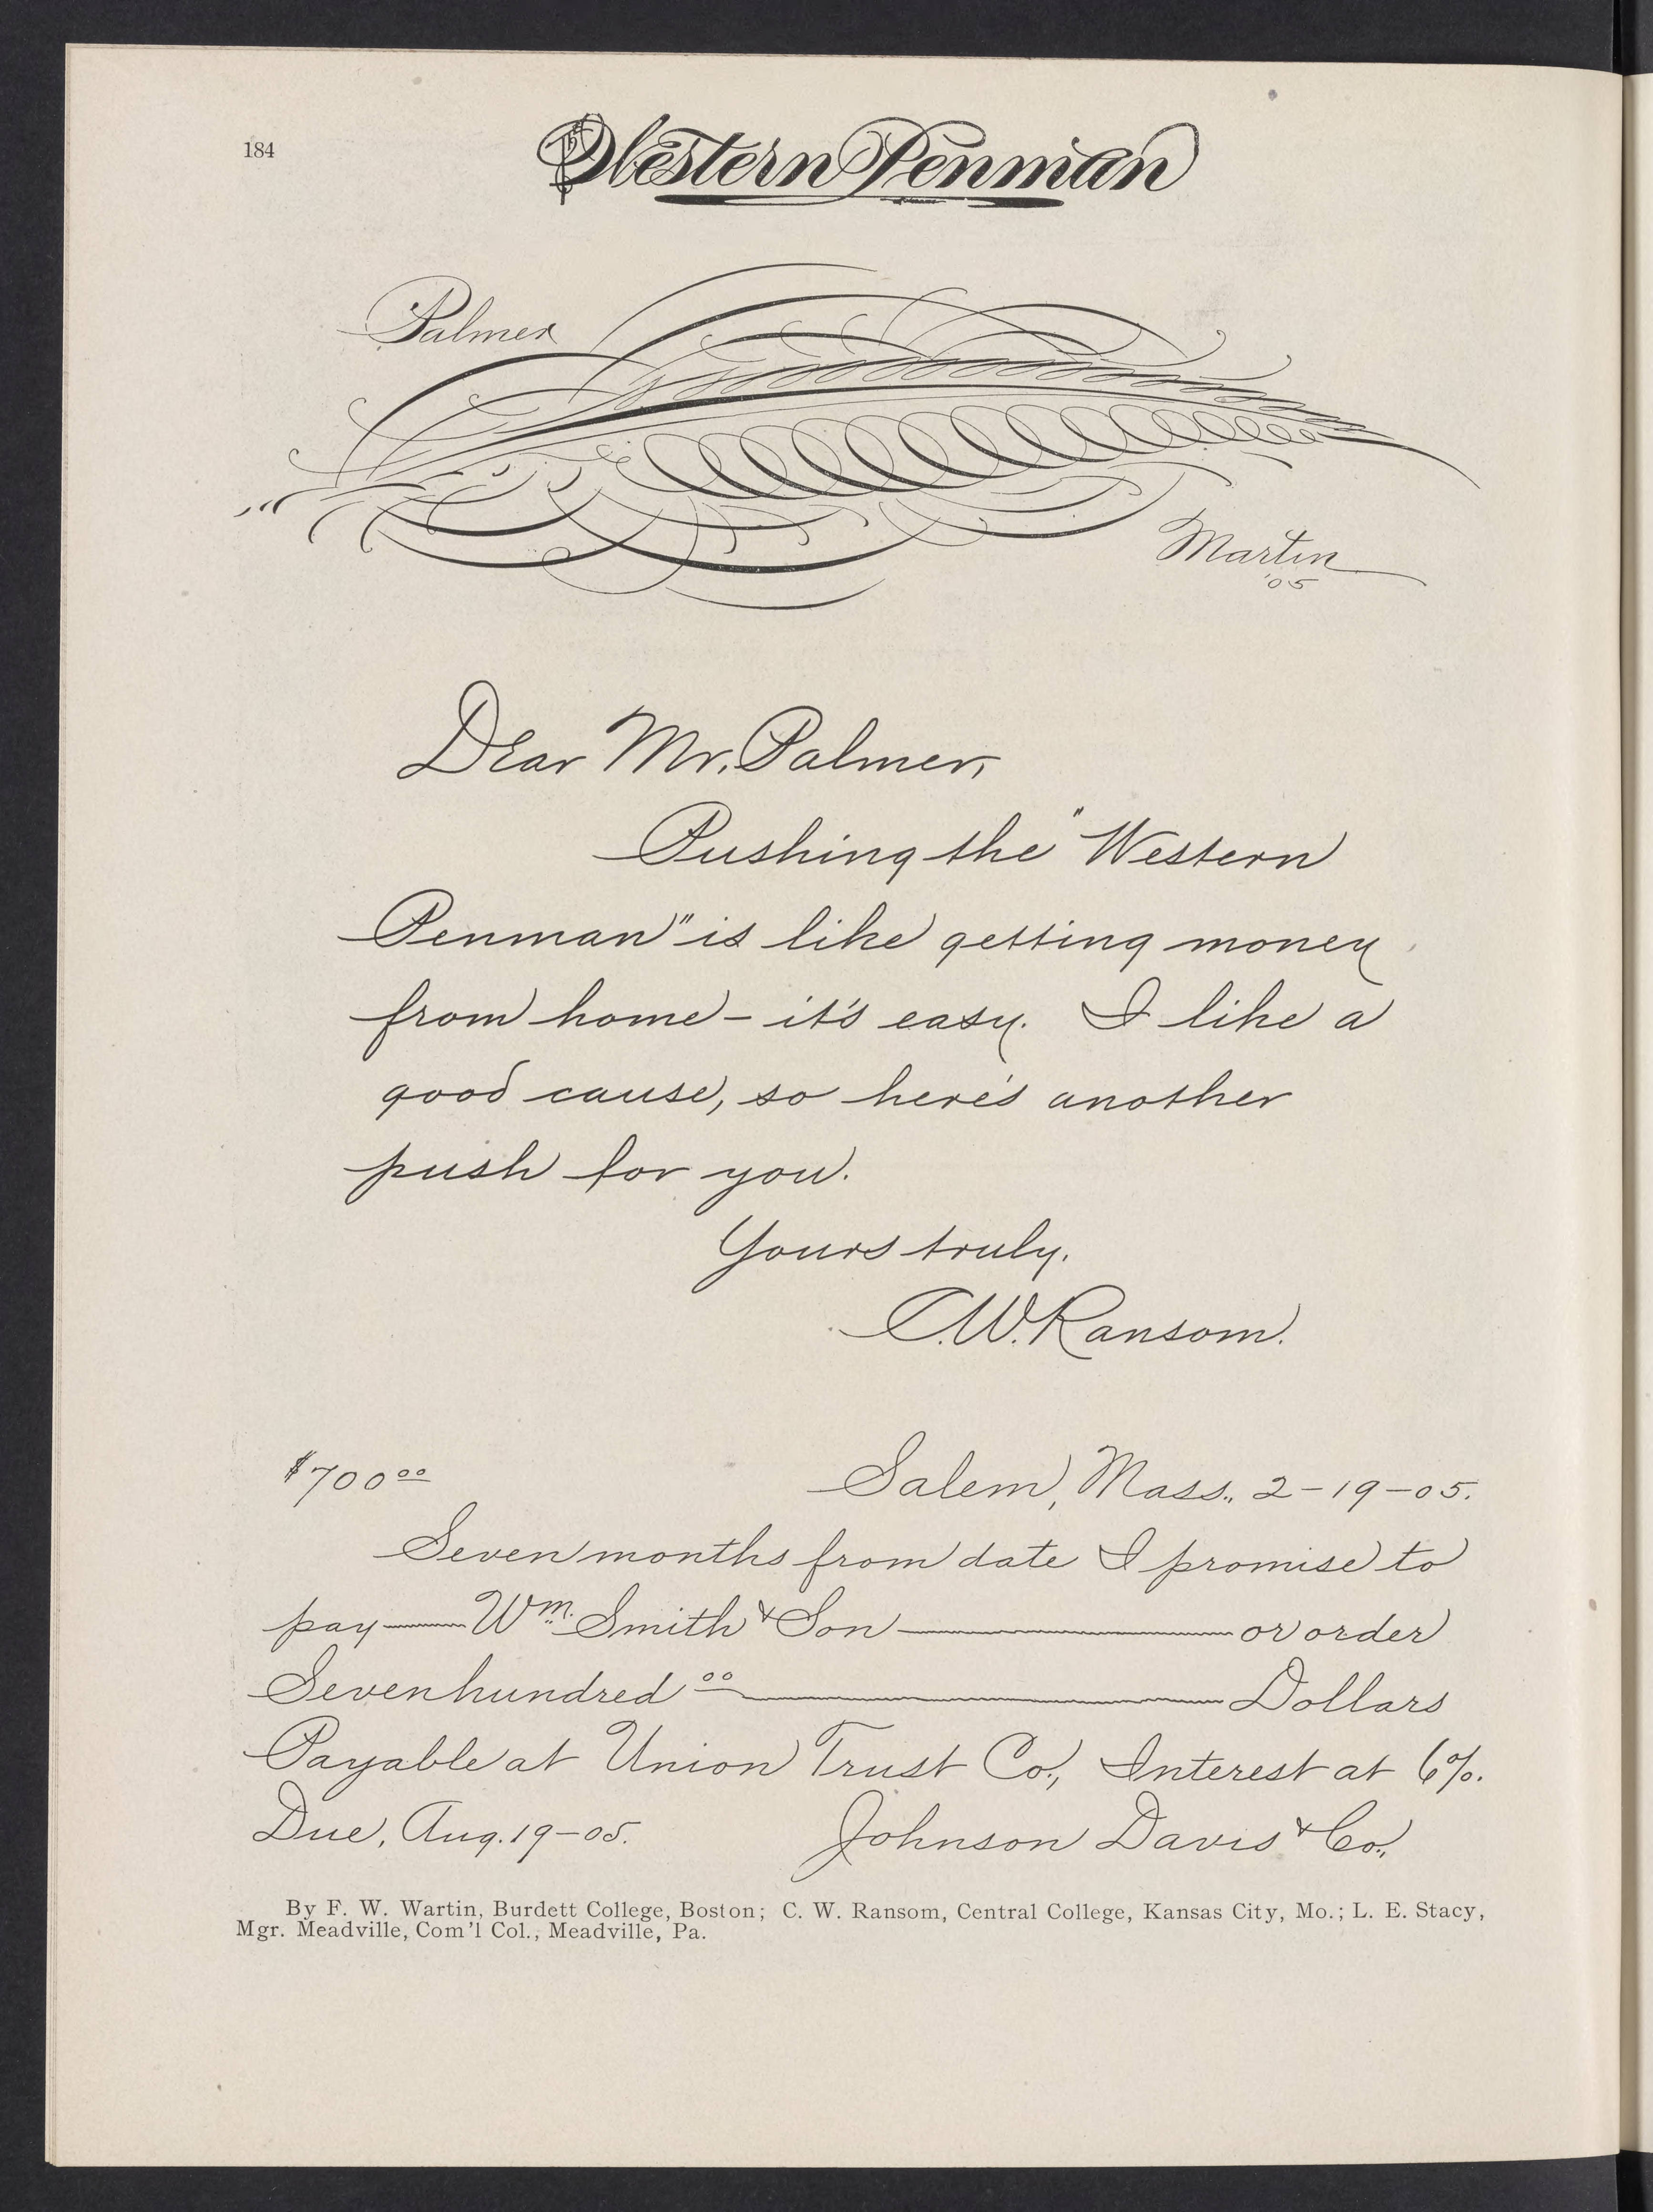 184
Western Penman
Palmer
Martin
'05
Dear Mr. Palmer,
Pushing the "Western
Penman" is like getting money
from home - it's easy. I like a
good cause, so here's another
push for you.
Yours truly.
C.W. Ransom.
$700 00 Salem, Mass., 2-19-05.
Seven months from date I promise to
pay Wm. Smith & Son or order
Seven hundred 00 Dollars
Payable at Union Trust Co., Interest at 6%.
Due, Aug. 19-05. Johnson Davis & Co.,
By F. W. Wartin, Burdett College, Boston; C. W. Ransom, Central College, Kansas City, Mo.; L. E. Stacy,
Mgr. Meadville, Com'l Col., Meadville, Pa.